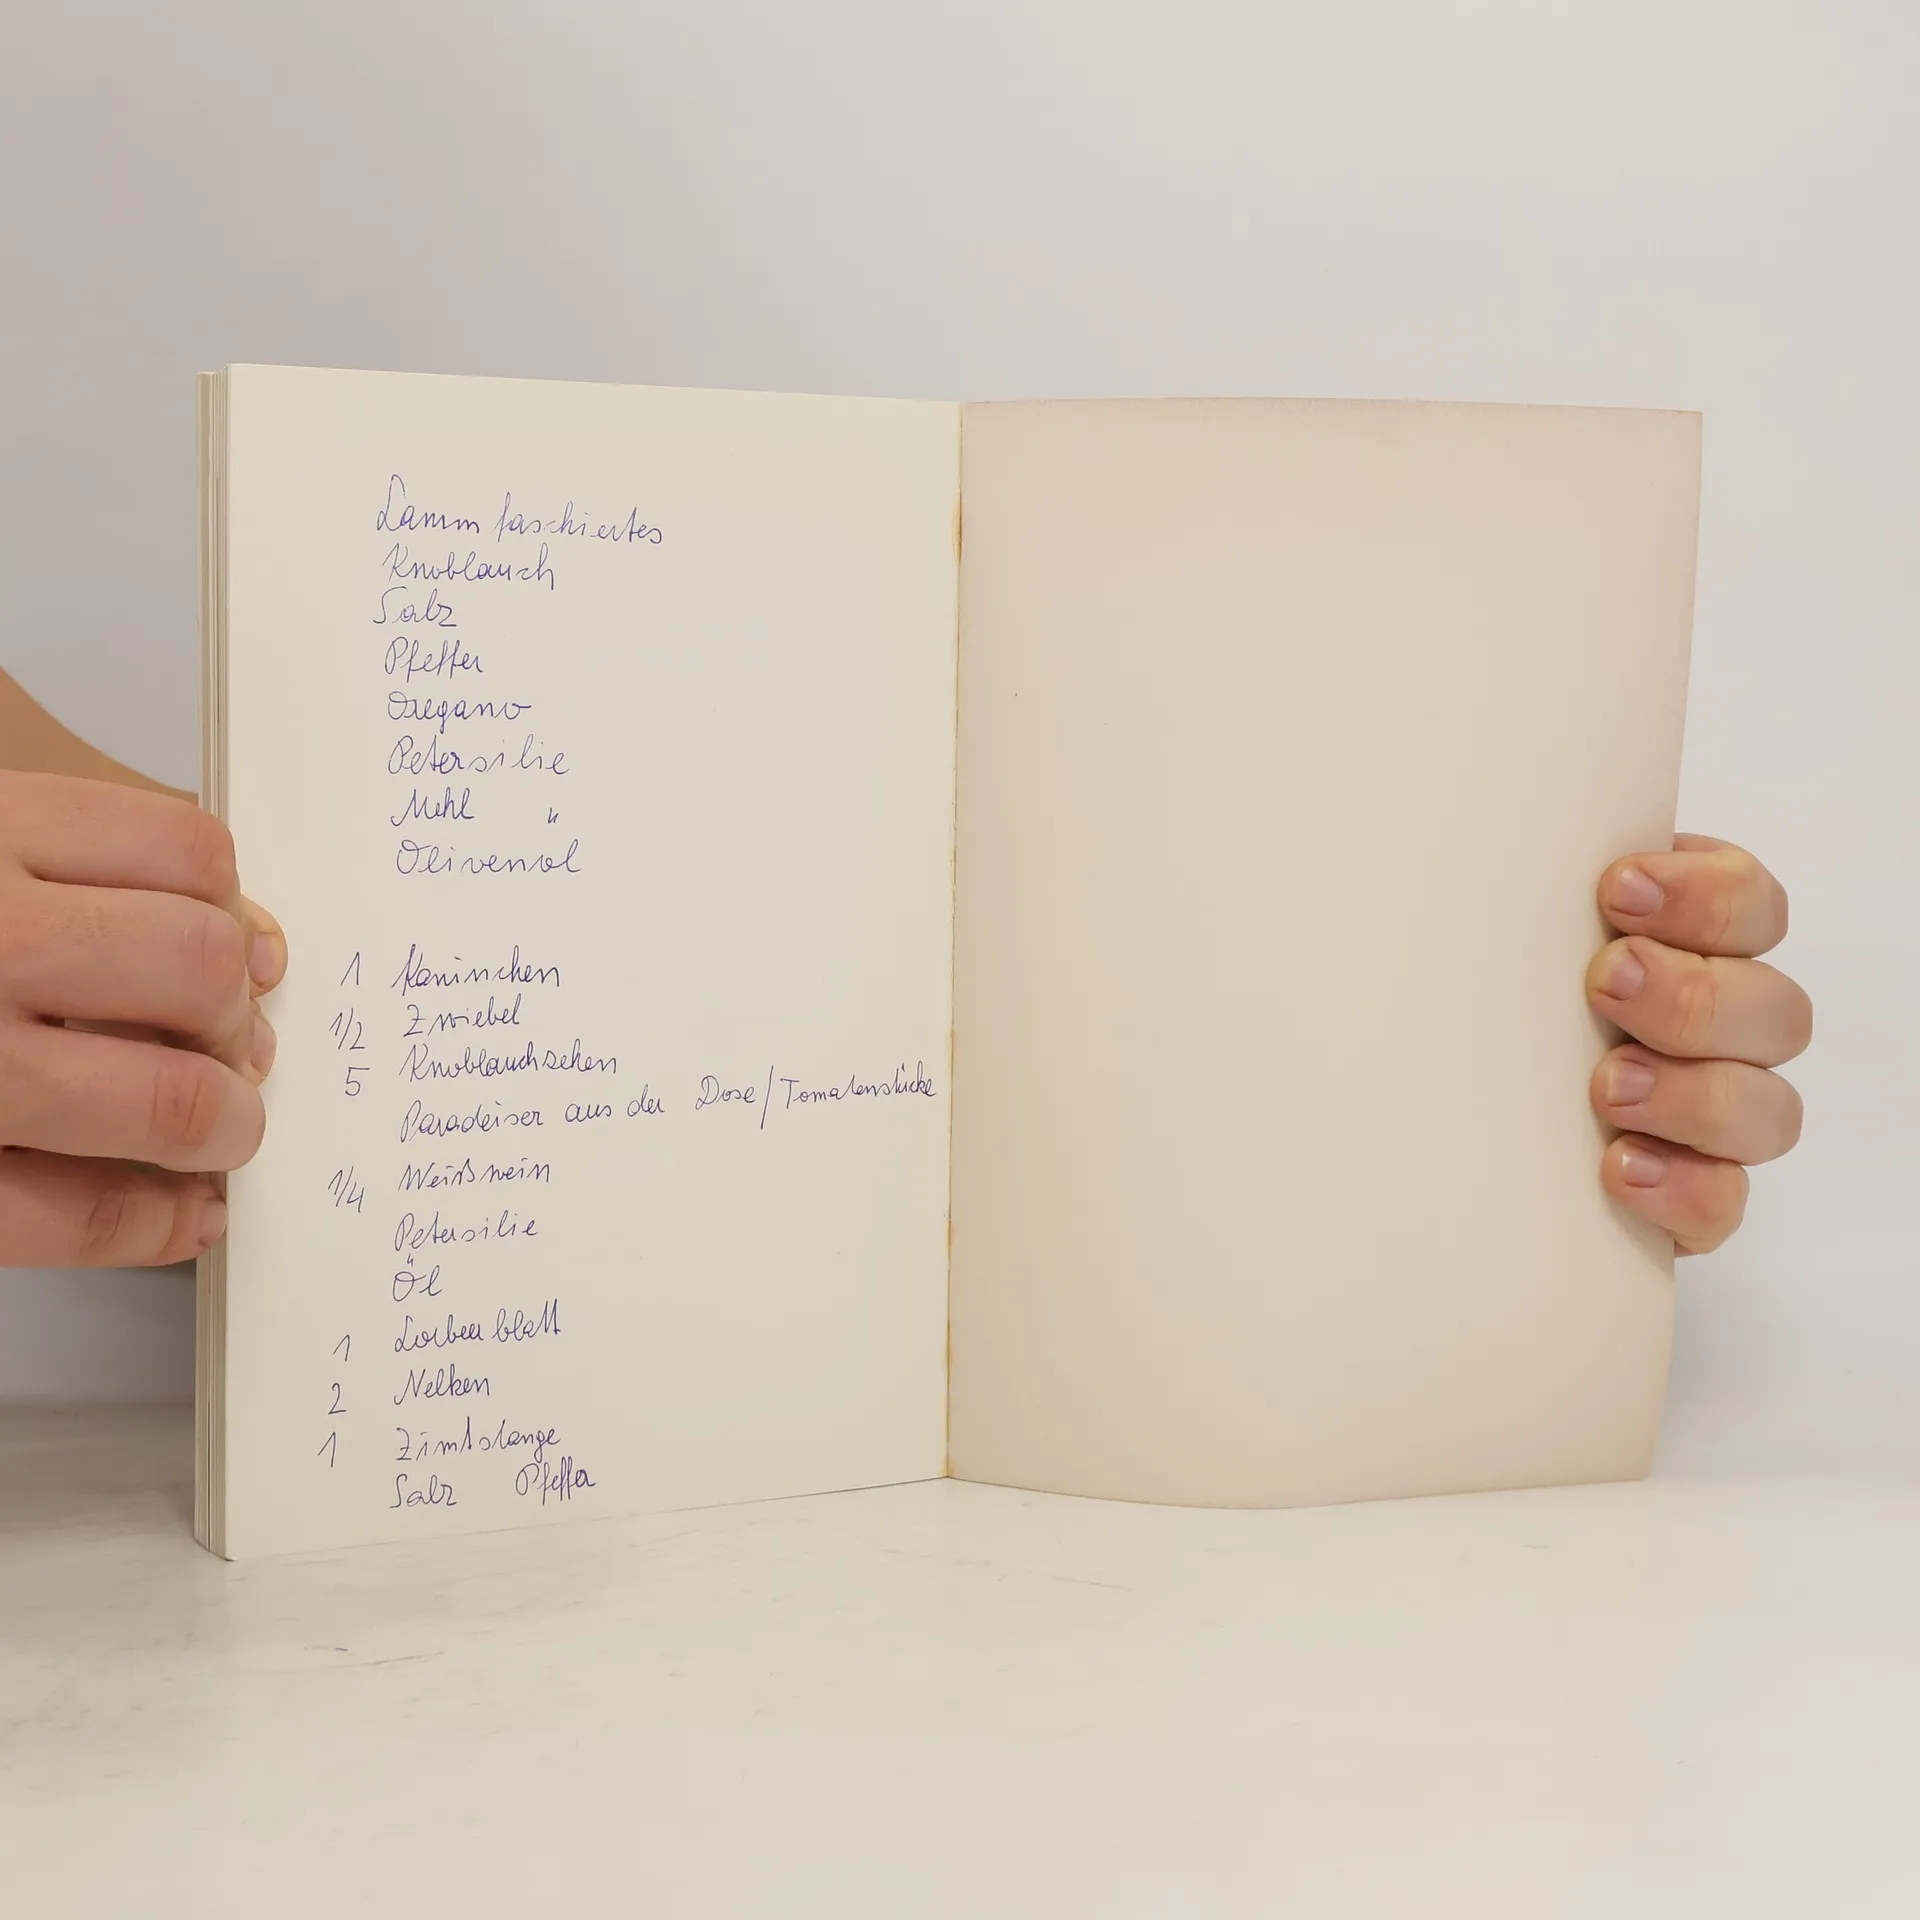 Lamm faschiertes
Knoblauch
Salz
Pfeffer
Oregano
Petersilie
Mehl
Olivenöl
1 Kaninchen
1/2 Zwiebel
5 Knoblauchzehen
Paradeiser aus der Dose/Tomatenstücke
1/4 Weißwein
Petersilie
Öl
1 Lorbeerblatt
2 Nelken
1 Zimtstange
Salz Pfeffer